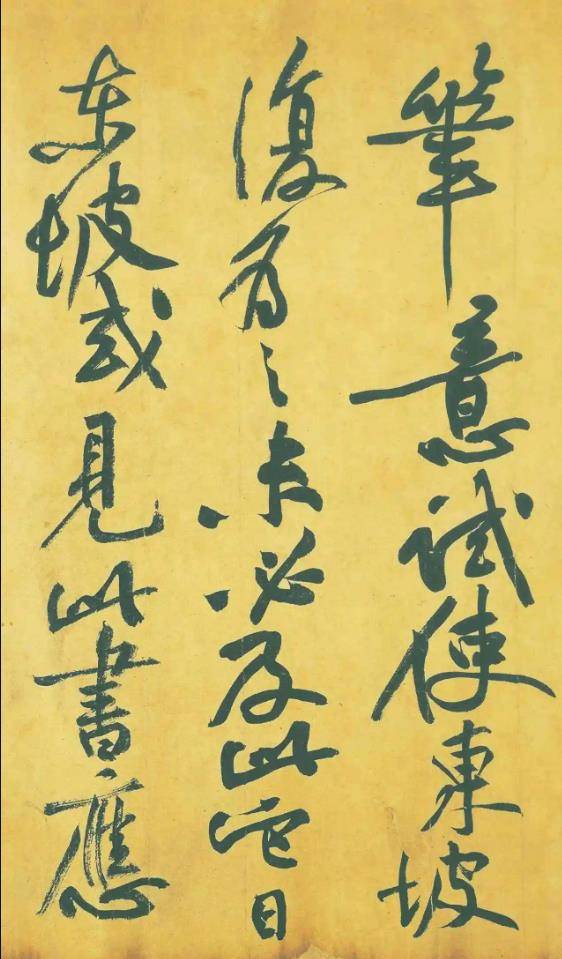 筆意試使東坡
復為之未必及此它日
東坡或見此書應